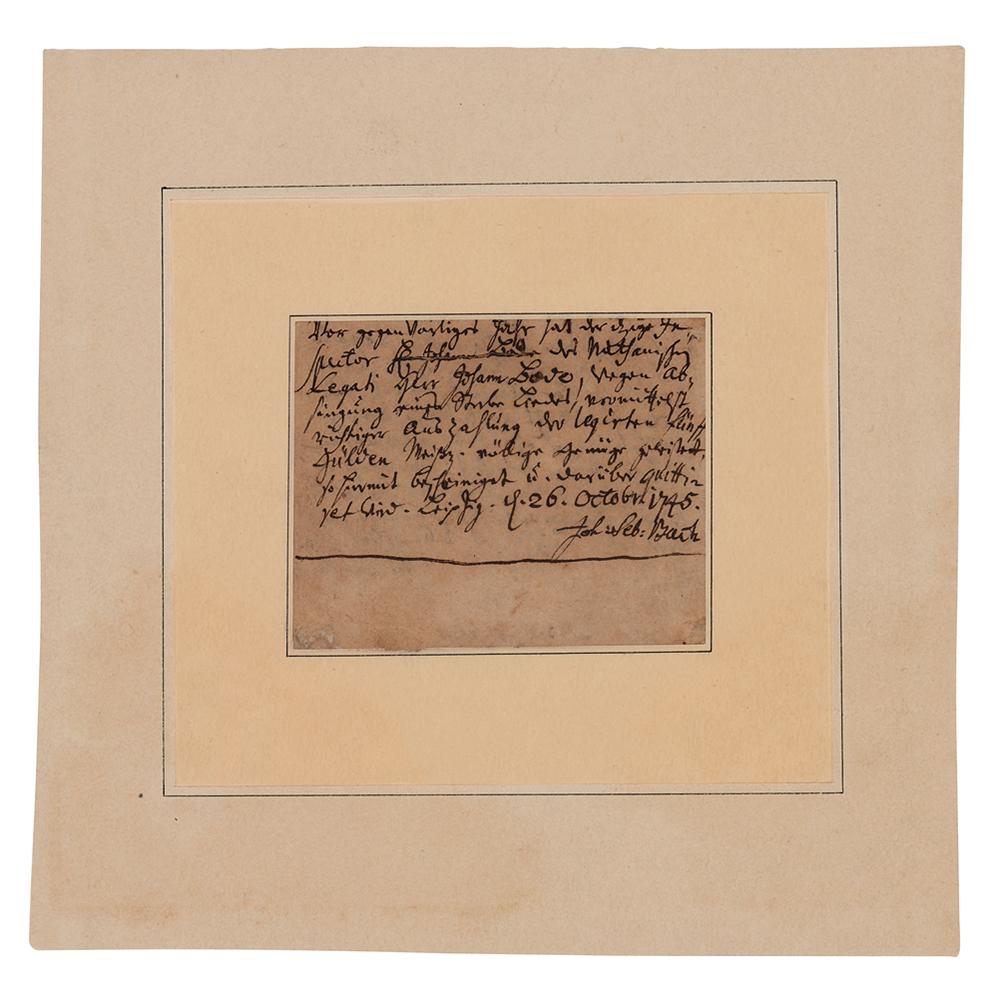 Vor gegenwärtiges Jahr hat der itzige In-
spector H. Johann Bode des Nathanischen
Legati Herr Johann Bode, wegen Ab-
singung eines Sterbe Liedes, vermittelst
richtiger Auszahlung der legirten fünff
Gülden Meißn. völlige Genüge geleistet,
so hiermit bescheiniget u. darüber quitti-
ret wird. Leipzig. d. 26. Octobr. 1745.
Joh: Seb: Bach